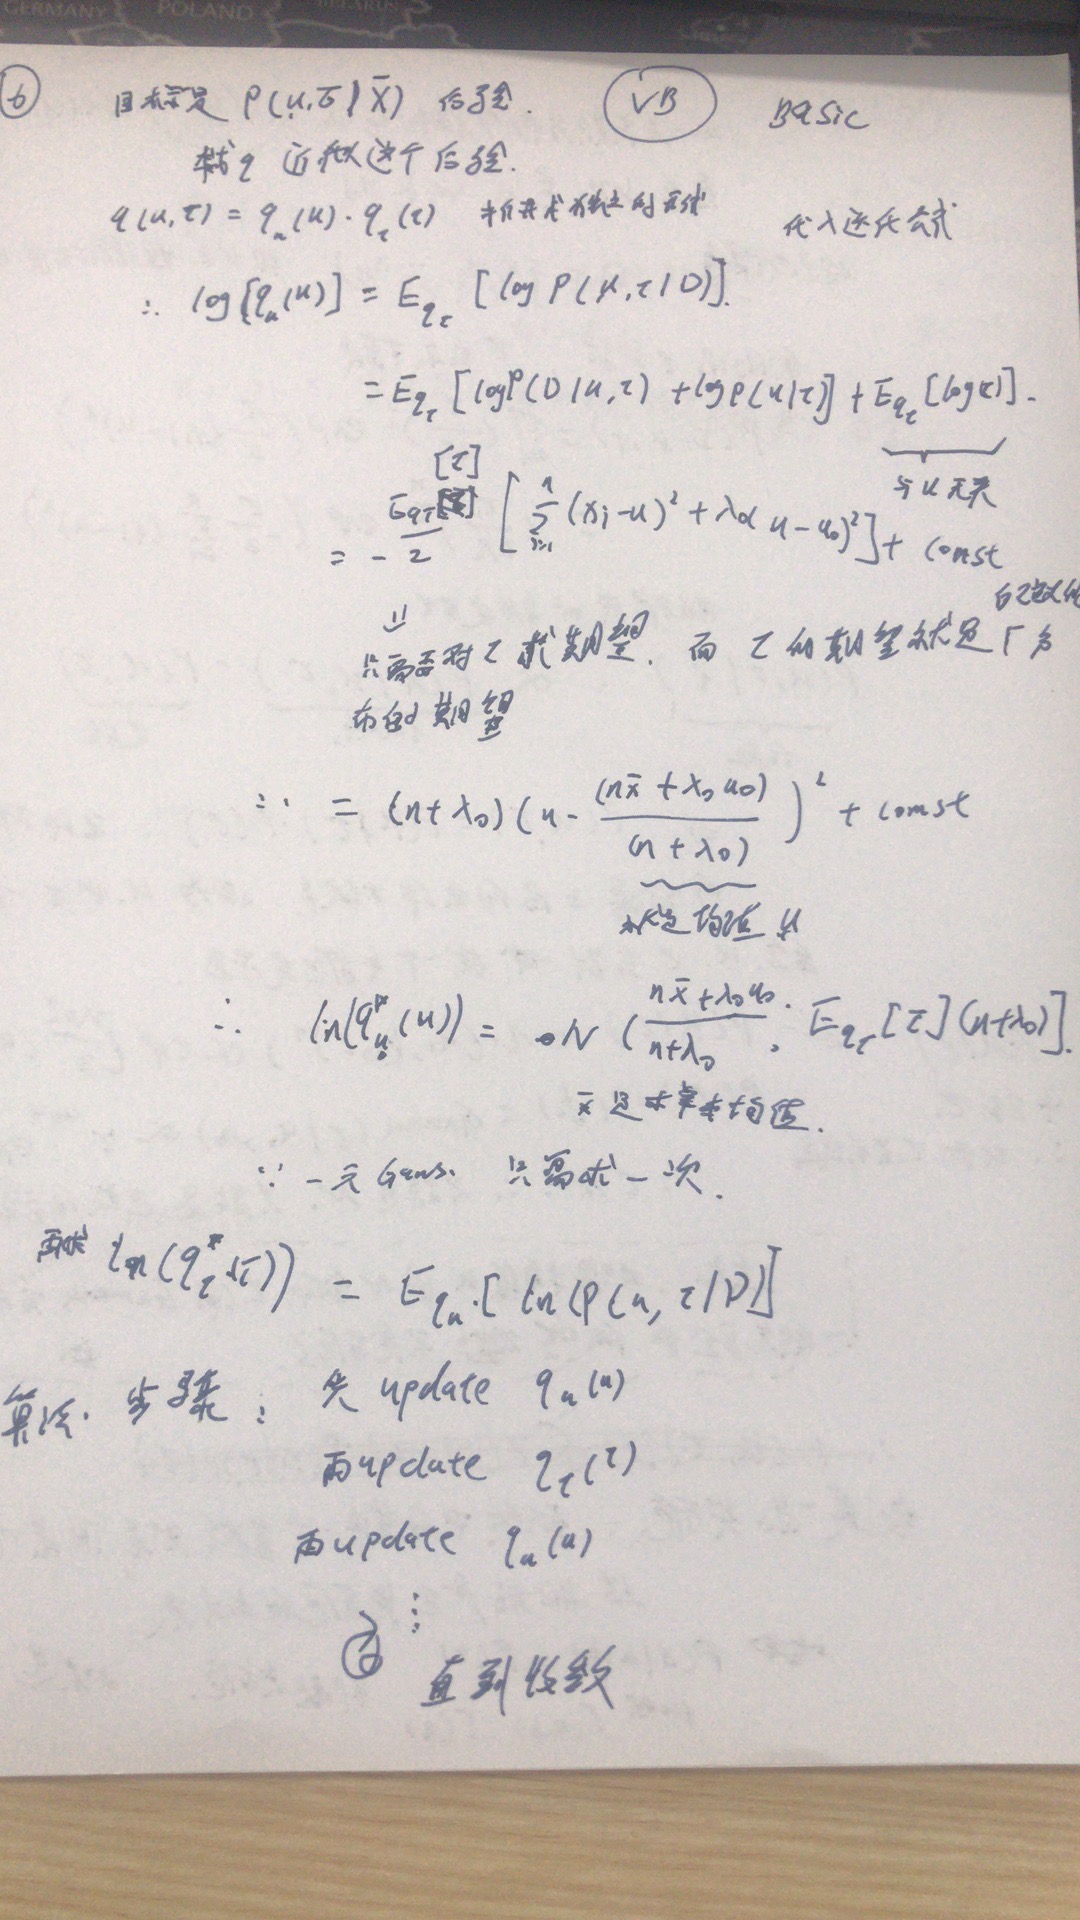 GERMANY POLAND BELARUS
⑥ 目标是 P(u,τ|X̄) 后验. VB Basic
找 q 近似这个后验.
q(u,τ) = q_u(u)·q_τ(τ) 拆开成独立的形式 代入迭代公式
∴ log[q_u(u)] = E_{q_τ} [log P(u,τ|D)].
= E_{q_τ} [log P(D|u,τ) + log P(u|τ)] + E_{q_τ}[log τ].
与u无关
= - E_{qτ}[τ]/2 [ Σ_{i=1}^{n} (x_i-u)² + λ₀(u-u₀)²] + const
⇓
只需要对τ求期望. 而τ的期望就是Γ分
布的期望
∴ = (n+λ₀)(u - (nx̄+λ₀u₀)/(n+λ₀))² + const
就是均值 u
∴ ln(q_u*(u)) = N((nx̄+λ₀u₀)/(n+λ₀), E_{q_τ}[τ](n+λ₀)].
x̄ 是样本均值.
∵ 一元 Gauss. 只需求一次.
再求 ln(q_τ*(τ)) = E_{q_u}[ln(P(u,τ|D)]
算法步骤: 先 update q_u(u)
再update q_τ(τ)
再update q_u(u)
⋮
直到收敛